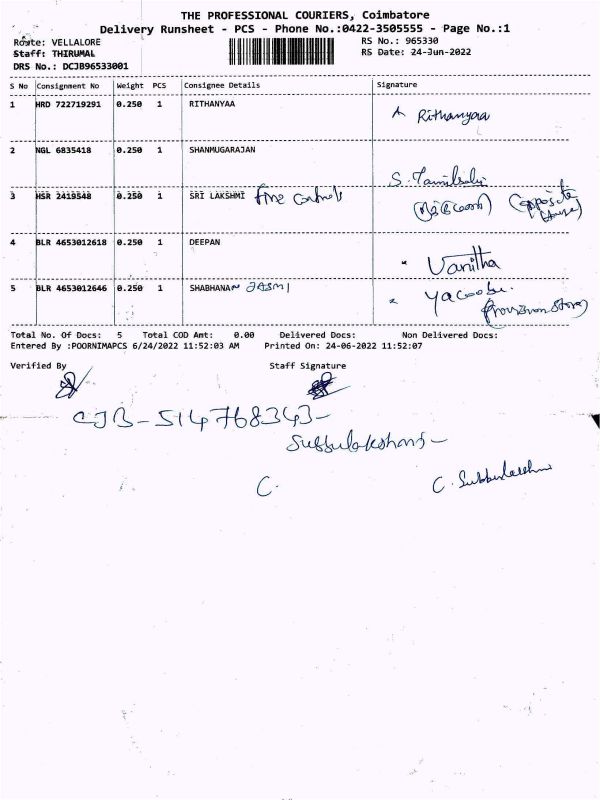 THE PROFESSIONAL COURIERS, Coimbatore
Delivery Runsheet - PCS - Phone No.:0422-3505555 - Page No.:1
Route: VELLALORE RS No.: 965330
Staff: THIRUMAL RS Date: 24-Jun-2022
DRS No.: DCJB96533001
S No Consignment No Weight PCS Consignee Details Signature
1 HRD 722719291 0.250 1 RITHANYAA Rithanyaa
2 NGL 6835418 0.250 1 SHANMUGARAJAN S.
3 HSR 2419548 0.250 1 SRI LAKSHMI Fire Controls (opposite
4 BLR 4653012618 0.250 1 DEEPAN Vanitha
5 BLR 4653012646 0.250 1 SHABHANAN JASMI Yacoobu.
(Provision Store)
Total No. Of Docs: 5 Total COD Amt: 0.00 Delivered Docs: Non Delivered Docs:
Entered By :POORNIMAPCS 6/24/2022 11:52:03 AM Printed On: 24-06-2022 11:52:07
Verified By Staff Signature
CJB-514768343-
Subbulakshami-
C. C. Subbulakshmi